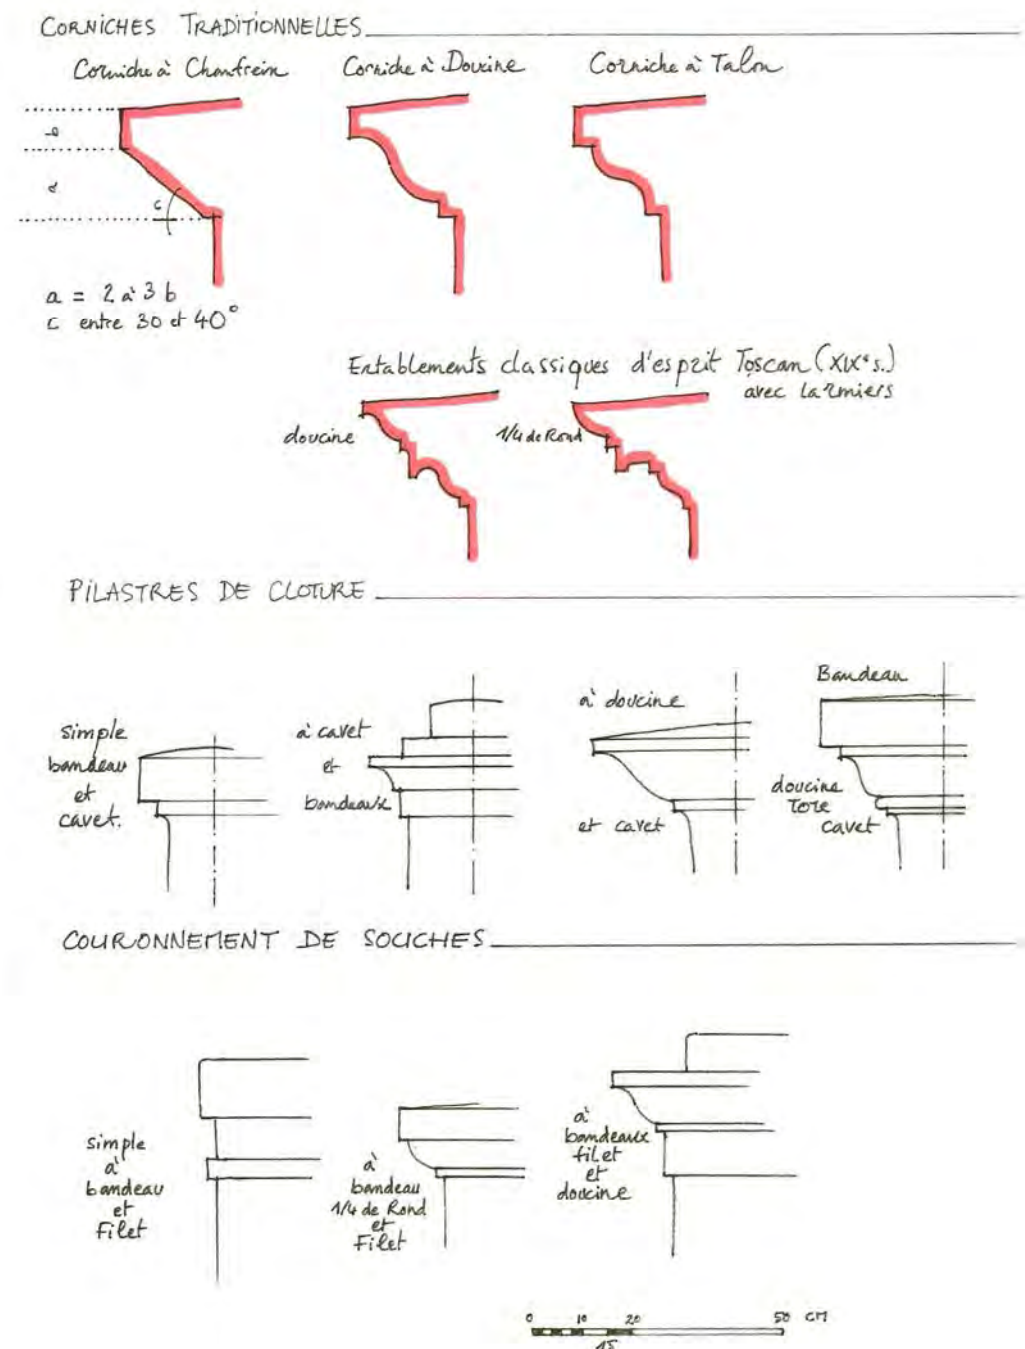 CORNICHES TRADITIONNELLES
Corniche à Chanfrein
Corniche à Doucine
Corniche à Talon
b
a
c
a = 2 à 3 b
c entre 30 et 40°
Entablements classiques d'esprit Toscan (XIXe s.)
avec larmiers
doucine
1/4 de Rond
PILASTRES DE CLOTURE
simple
bandeau
et
cavet.
à cavet
et
bandeaux
à doucine
et cavet
Bandeau
doucine
Tore
cavet
COURONNEMENT DE SOUCHES
simple
à
bandeau
et
Filet
à
bandeau
1/4 de Rond
et
Filet
à
bandeaux
filet
et
doucine
0 10 20 50 CM
15